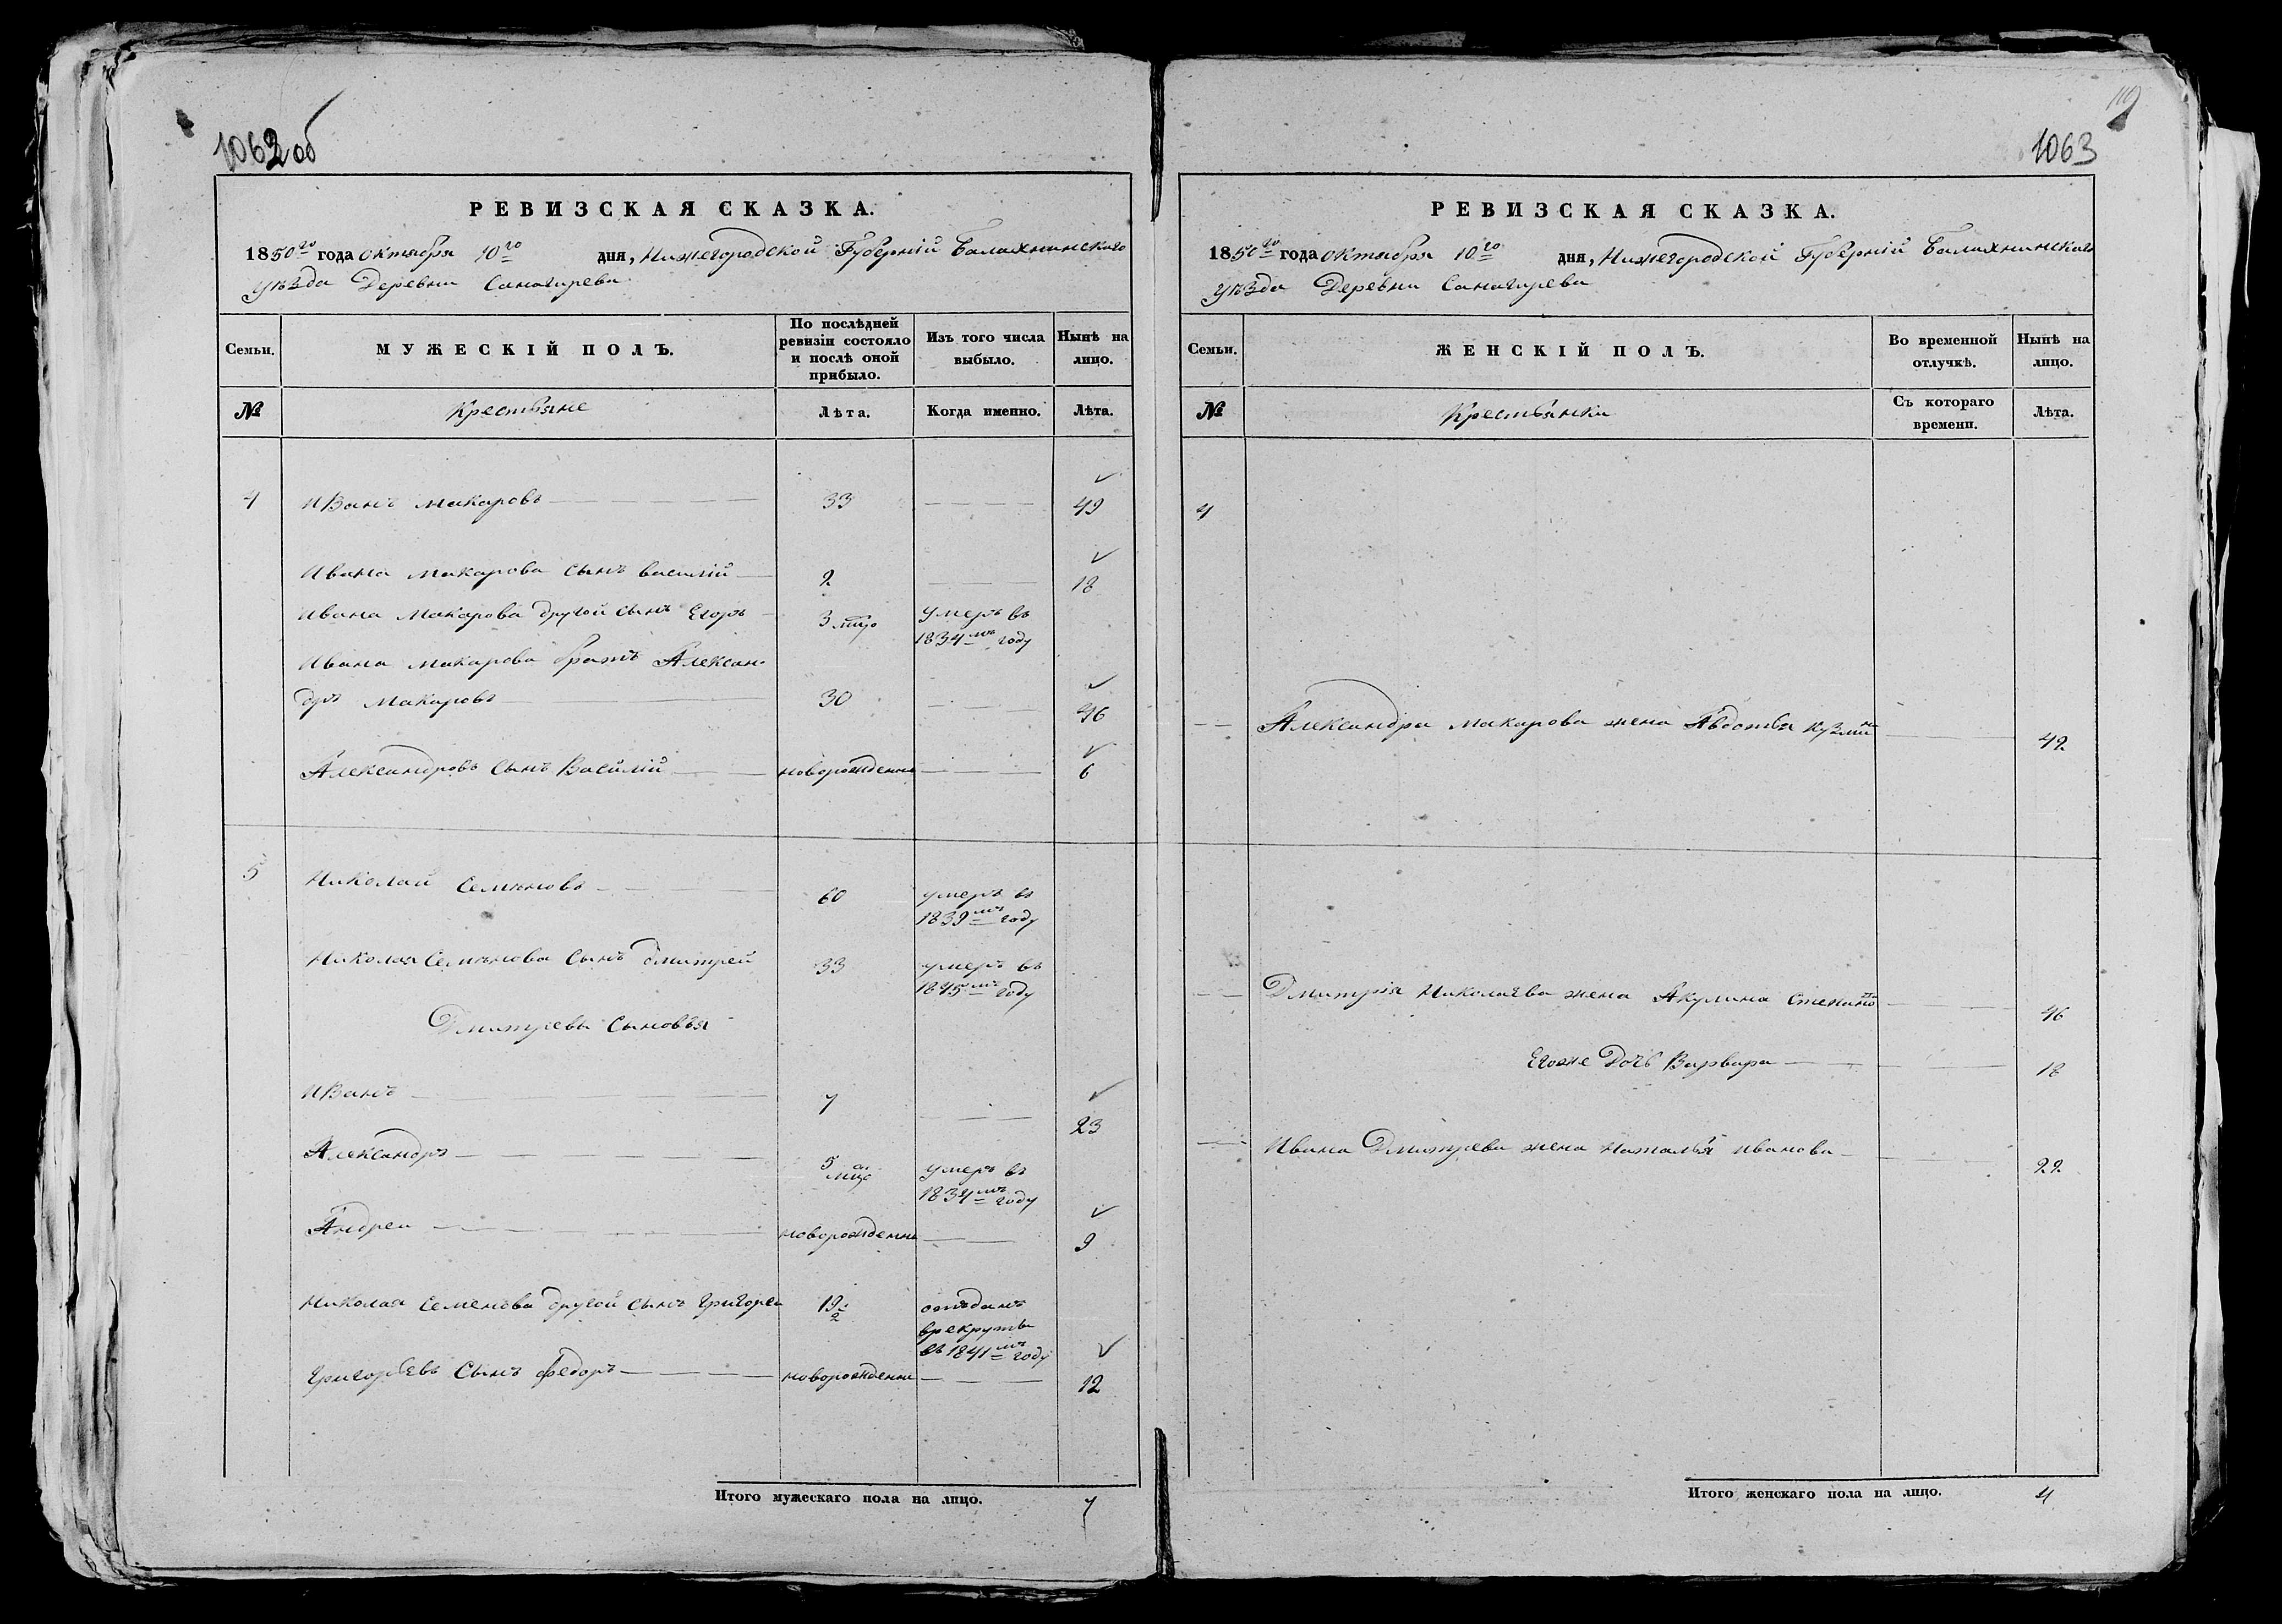 1062об
РЕВИЗСКАЯ СКАЗКА.
1850го года октября 10го дня, Нижегородской Губерніи Балахнинскаго
уѣзда Деревни
Семьи.
МУЖЕСКІЙ ПОЛЪ.
По послѣдней
ревизіи состояло
и послѣ оной
прибыло.
Изъ того числа
выбыло.
Нынѣ на
лицо.
№
Крестьяне
Лѣта.
Когда именно.
Лѣта.
4 Иванъ Макаровъ 33 49
Ивана Макарова сынъ Василій 2 18
Ивана Макарова другой сынъ Егоръ 3 умеръ въ
1834мъ году
Ивана Макарова братъ Алексан-
дръ Макаровъ 30 46
Александровъ сынъ Василій новорожденны 6
5 Николай Семеновъ 60 умеръ въ
1839мъ году
Николая Семенова сынъ Дмитрей 33 умеръ въ
1845мъ году
Дмитревы сыновья
Иванъ 7 23
Александръ 5 умеръ въ
1834мъ году
Андреи новорожденны 9
Николая Семенова другой сынъ Григореи 19½ отъданъ
врекруты
въ 1841мъ году
Григорьевъ сынъ Федоръ новорожденны 12
Итого мужескаго пола на лицо. 7
119
1063
РЕВИЗСКАЯ СКАЗКА.
1850го года октября 10го дня, Нижегородской Губерніи Балахнинскаго
уѣзда Деревни
Семьи.
ЖЕНСКІЙ ПОЛЪ.
Во временной
отлучкѣ.
Нынѣ на
лицо.
№
Крестьянки
Съ котораго
времени.
Лѣта.
4
Александра Макарова жена Авдотья Кузмина 42
Дмитрія Николаева жена Акулина Степано 46
Егоже дочь Варвара 18
Ивана Дмитрева жена Наталья Иванова 22
Итого женскаго пола на лицо. 4